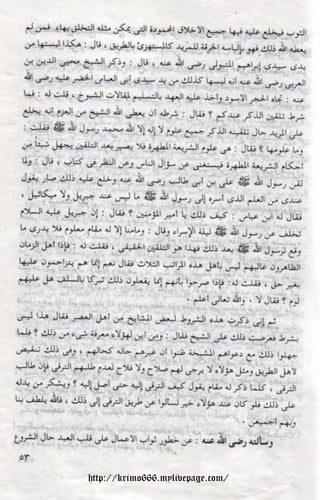 الثوب فيخلع عليه فيها جميع الأخلاق المحمودة التى يمكن مثله التخلق بها، فمن لم
يعطه الله ذلك فهو بإلباسه الخرقة للمريد كالمستهزئ بالطريق، قال : هكذا لبستها من
يدى سيدى إبراهيم المتبولى رضى الله عنه، قال : وذكر الشيخ محيى الدين بن
العربى رضى الله عنه أنه لبسها كذلك من يد سيدى أبى العباس الخضر عليه رضى الله
عنه : تجاه الحجر الأسود وأخذ عليه العهد بالتسليم لمقالات الشيوخ، قلت له : فما
شرط تلقين الذكر عندكم ؟ فقال : شرطه أن يعطى الله الشيخ من العزم أنه يخلع
على المريد حال تلقينه الذكر جميع علوم لا إله إلا الله محمد رسول الله ﷺ فقلت :
وما علومها ؟ فقال : هى علوم الشريعة المطهرة فلا يصير بعد التلقين يجهل شيئاً من
أحكام الشريعة المطهرة فيستغنى عن سؤال الناس وعن النظر فى كتاب، قال : ولما
لقن رسول الله ﷺ على بن أبى طالب رضى الله عنه وخلع عليه ذلك صار يقول
عندى من العلم الذى أسره إلى رسول الله ﷺ ما ليس عند جبريل ولا ميكائيل،
فقال له ابن عباس : كيف ذلك يا أمير المؤمنين ؟ فقال : إن جبريل عليه السلام
تخلف عن رسول الله ﷺ ليلة الإسراء وقال : وما منا إلا له مقام معلوم فلا يدرى ما
وقع لرسول الله ﷺ بعد ذلك فهذا هو التلقين الحقيقى، فقلت له : فإذا أهل الزمان
الظاهرون غالبهم ليس بأهل هذه المراتب الثلاث فقال نعم إنما هم يتزاحمون عليها
بغير حق، فقلت له : فإذا صرحوا بأنهم إنما يفعلون ذلك تبركا بالسلف هل عليهم
لوم ؟ فقال لا، والله تعالى أعلم .
ثم إنى ذكرت هذه الشروط لبعض المشايخ من أهل العصر فقال هذا ليس
بشرط فعرضت ذلك على الشيخ فقال : ومن أين لهؤلاء معرفة شىء من ذلك ؟ فلما
جهلوا ذلك مع دعواهم المشيخة ظنوا أن غيرهم حاله كحالهم، وفى ذلك تنقيص
لأهل الطريق ومثل هؤلاء لا يرجى لهم صلاح ولا فلاح لعدم طلبهم الترقى فإن طالب
الترقى، كلما ذكر له مقام يقول كيف الترقى إليه حتى أصل إليه ؟ ويشكر من يدله
على ذلك فلو كان عند هؤلاء خير لسألوا عن طريق الترقى إلى ذلك، فالله يلطف بنا
وبهم أجمعين .
وسألته رضى الله عنه : عن خطور ثواب الأعمال على قلب العبد حال الشروع
٥٣
http://krimo666.mylivepage.com/